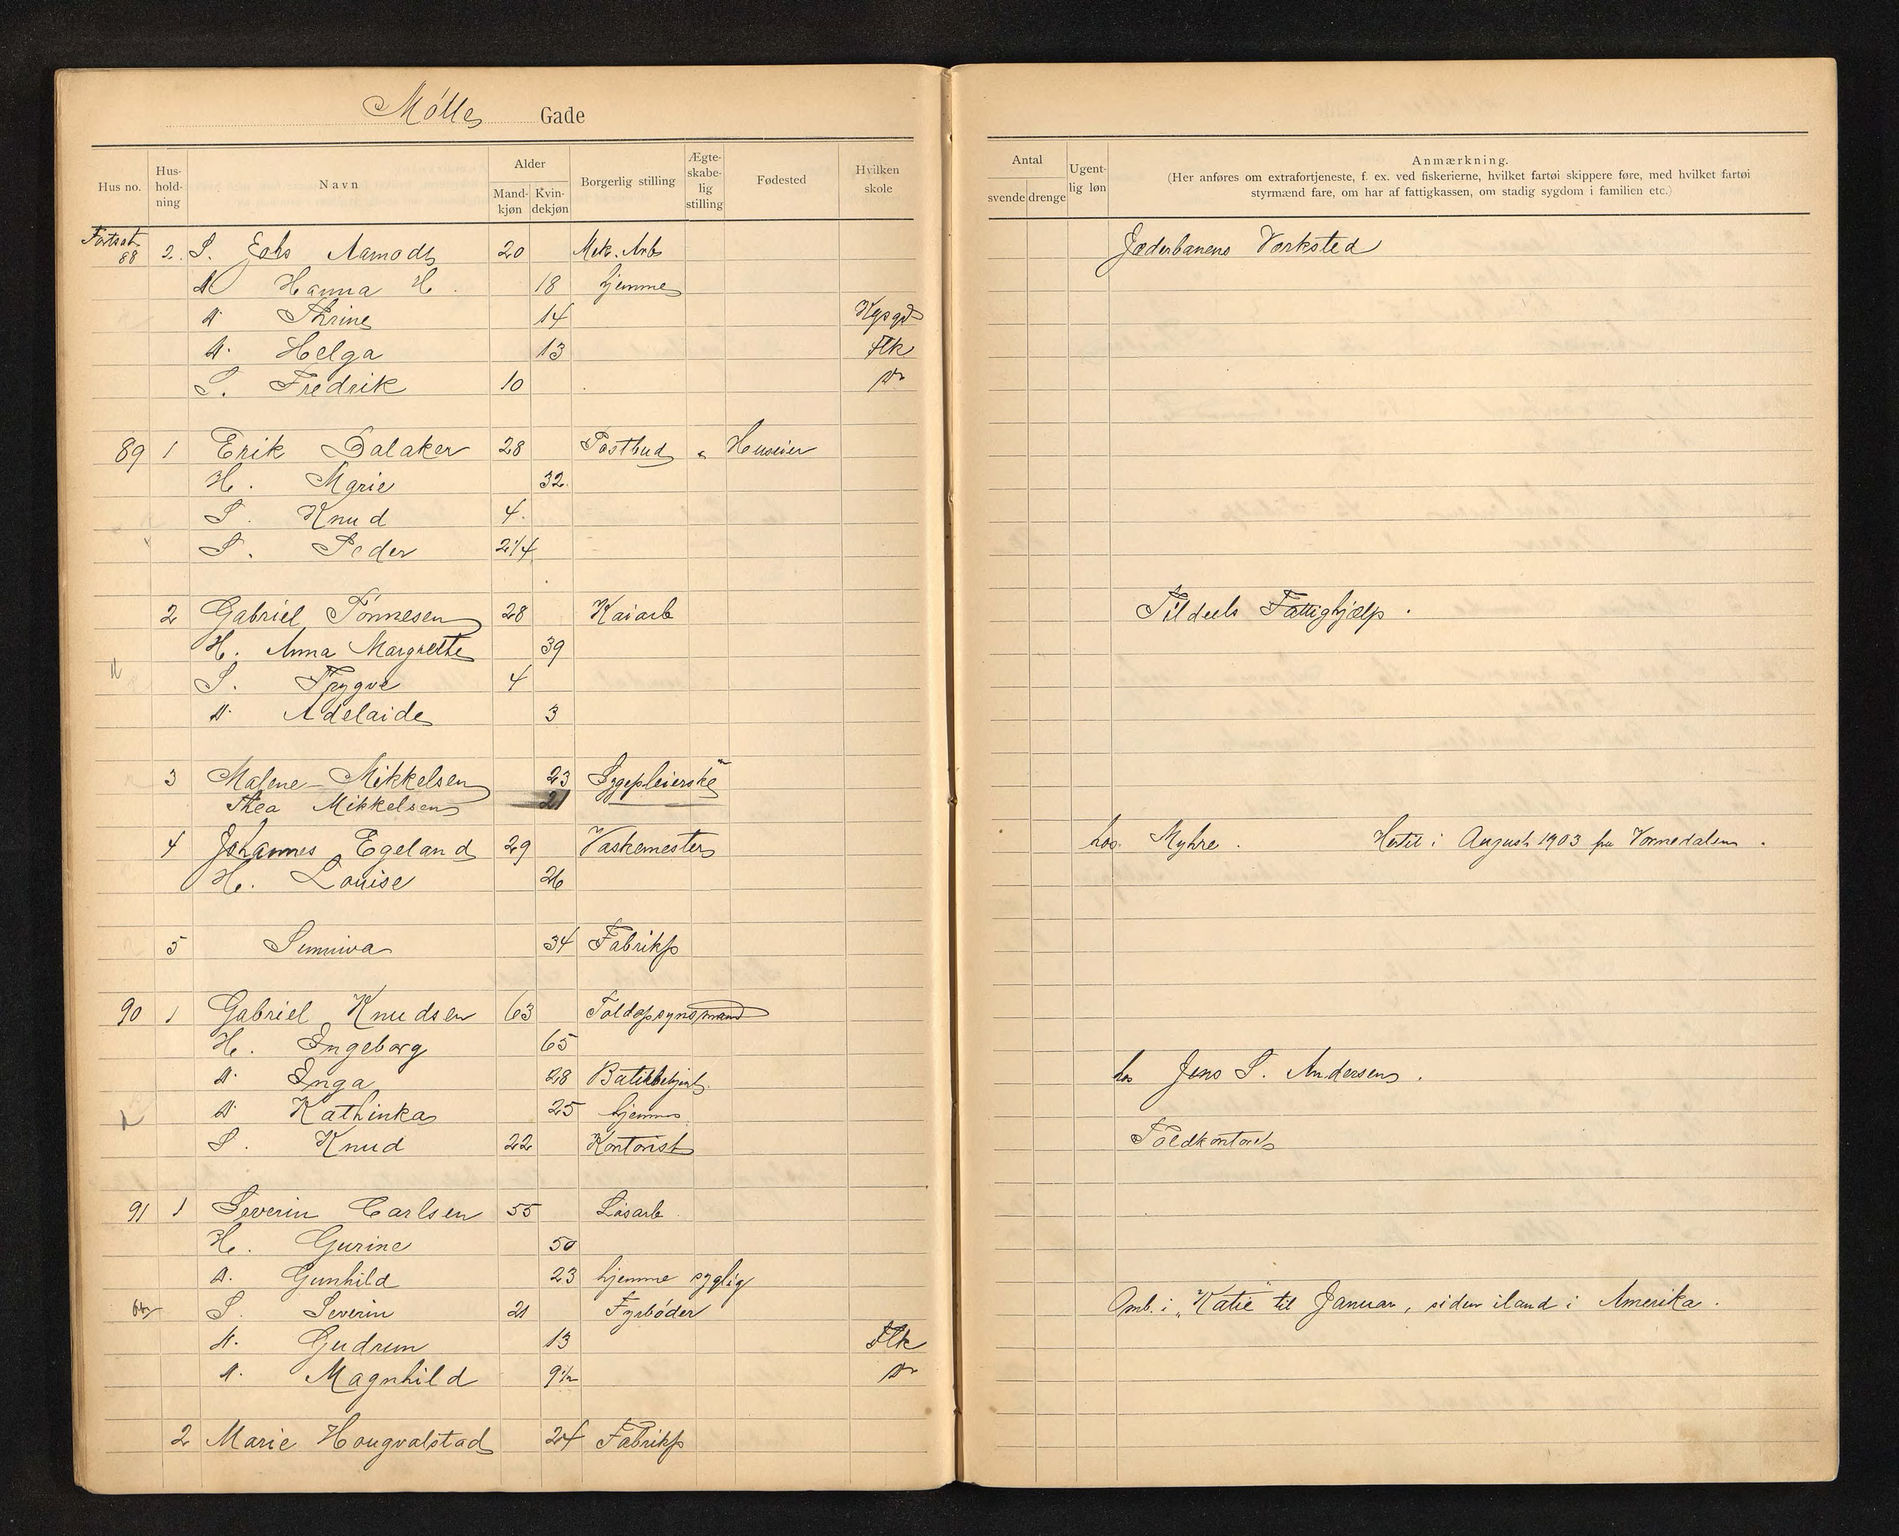 Mølle Gade
Hus no. Hus-hold-ning Navn Alder Mand-kjøn Kvin-dekjøn Borgerlig stilling Ægte-skabe-lig stilling Fødested Hvilken skole
Antal svende drenge Ugent-lig løn Anmærkning.
(Her anføres om extrafortjeneste, f. ex. ved fiskerierne, hvilket fartøi skippere føre, med hvilket fartøi
styrmænd fare, om har af fattigkassen, om stadig sygdom i familien etc.)
Fortsat 88 2 S. Johs Aamodt 20 Mek. Arb Jæderbanens Værksted
D Hanna H. 18 hjemme
D. Thrine 14 Kpsgd
D. Helga 13 Flk
S. Fredrik 10 Do
89 1 Erik Dalaker 28 Postbud " Huseier
H. Marie 32.
S. Knud 4.
S. Peder 2 1/4
2 Gabriel Tønnesen 28 Kaiarb Tildeels Fattighjælp.
H. Anna Margrethe 39
S. Trygve 4
D. Adelaide 3
3 Malene Mikkelsen 23 Sygepleierske
Thea Mikkelsen 21
4 Johannes Egeland 29 Vaskemester hos Myhre. Hertil i August 1903 fra
H. Louise 26
5 Sunniva 34 Fabrikp
90 1 Gabriel Knudsen 63 Toldopsynsmand
H. Ingeborg 65
D. Inga 28 Butikbetjent. hos Jens S. Andersen.
D. Kathinka 25 hjemme
S. Knud 22 Kontorist Toldkontoret
91 1 Severin Carlsen 55 Løsarb.
H. Gurine 50
D. Gunhild 23 hjemme syglig
S. Severin 21 Fyrbøder Omb. i "Katie" til Januar, siden iland i Amerika.
D. Gudrun 13 Flk
D. Magnhild 9 1/2 Do
2 Marie Hougvalstad 24 Fabrikp